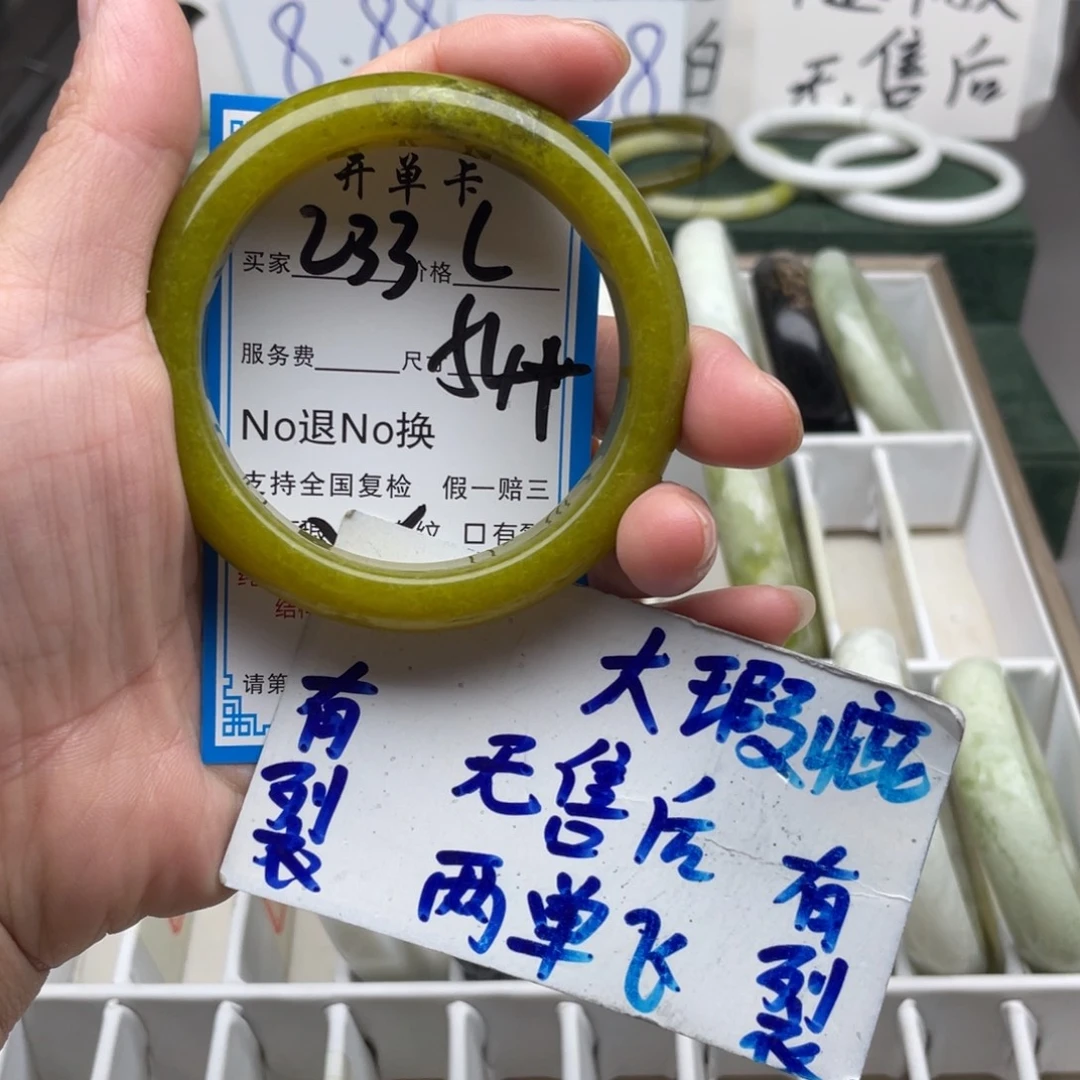 8.88
8
白
无售后
开单卡
买家 233 价格 L
服务费 尺寸 54+
No退No换
支持全国复检 假一赔三
纹 口有裂
请第
大瑕疵
无售后
两单飞
有裂
有裂